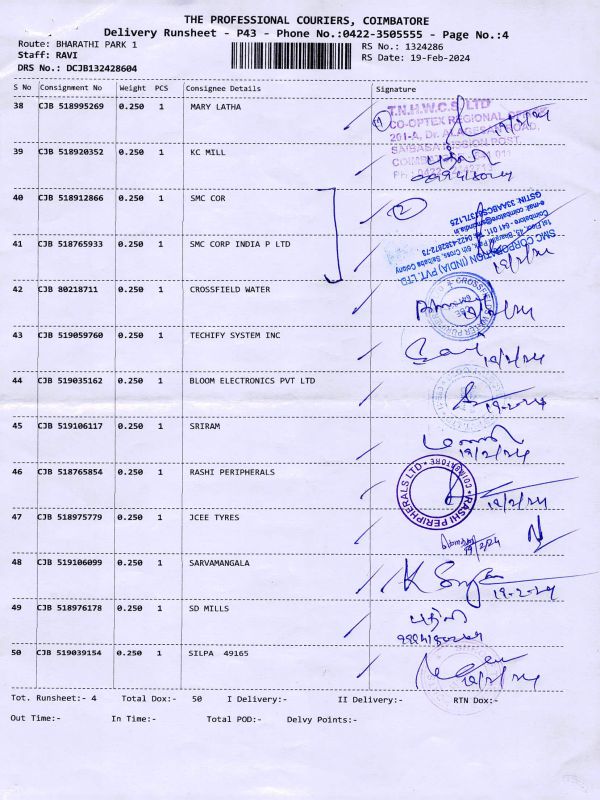 THE PROFESSIONAL COURIERS, COIMBATORE
Delivery Runsheet - P43 - Phone No.:0422-3505555 - Page No.:4
Route: BHARATHI PARK 1 RS No.: 1324286
Staff: RAVI RS Date: 19-Feb-2024
DRS No.: DCJB132428604
S No Consignment No Weight PCS Consignee Details Signature
38 CJB 518995269 0.250 1 MARY LATHA
T.N.H.W.C.S. LTD
CO-OPTEX REGIONAL
19/2/24
39 CJB 518920352 0.250 1 KC MILL
40 CJB 518912866 0.250 1 SMC COR
2
SMC CORPORATION (INDIA) PVT. LTD
41 CJB 518765933 0.250 1 SMC CORP INDIA P LTD
19/2/24
42 CJB 80218711 0.250 1 CROSSFIELD WATER
19/2/24
43 CJB 519059760 0.250 1 TECHIFY SYSTEM INC
19/2/24
44 CJB 519035162 0.250 1 BLOOM ELECTRONICS PVT LTD
19-2-24
45 CJB 519106117 0.250 1 SRIRAM
19/2/24
46 CJB 518765854 0.250 1 RASHI PERIPHERALS
RASHI PERIPHERALS LTD * COIMBATORE *
19/2/24
47 CJB 518975779 0.250 1 JCEE TYRES
19/2/24
48 CJB 519106099 0.250 1 SARVAMANGALA
19-2-24
49 CJB 518976178 0.250 1 SD MILLS
50 CJB 519039154 0.250 1 SILPA 49165
19/2/24
Tot. Runsheet:- 4 Total Dox:- 50 I Delivery:- II Delivery:- RTN Dox:-
Out Time:- In Time:- Total POD:- Delvy Points:-